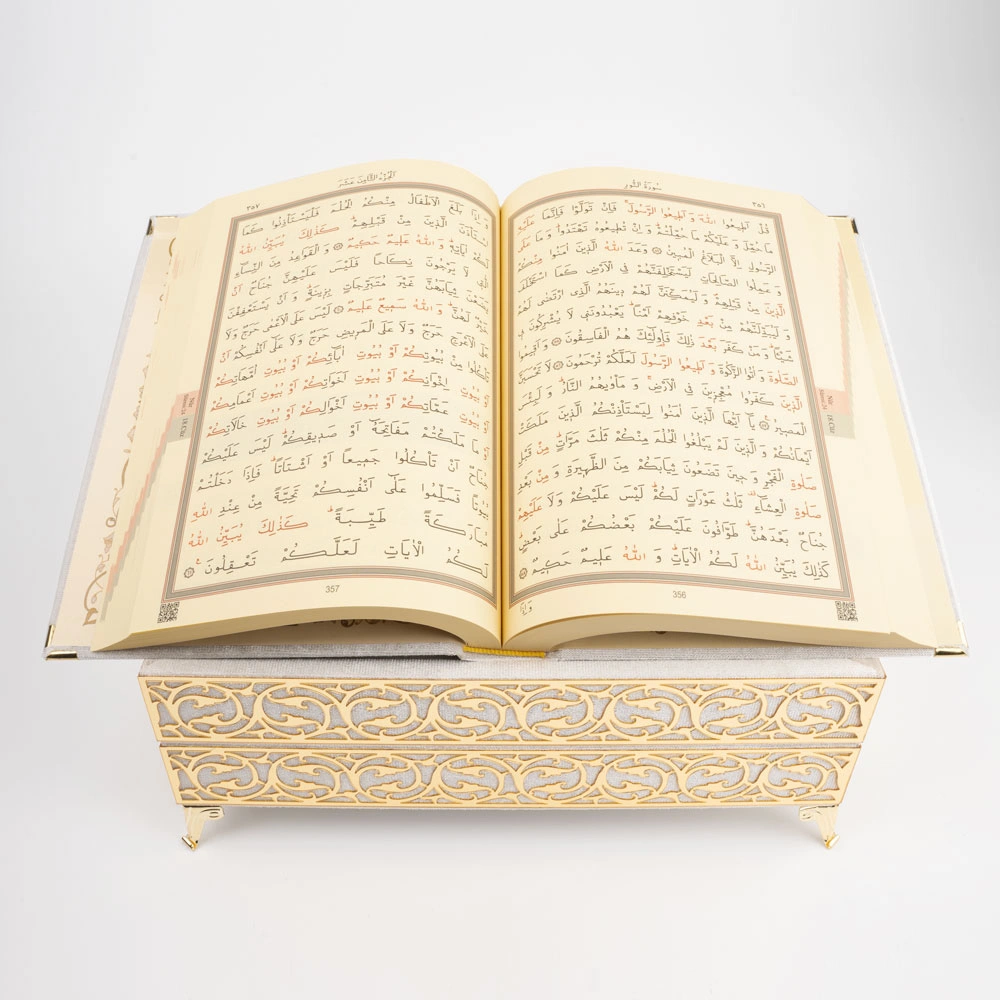 سُورَةُ النُّورِ
٣٥٦
قُلْ اَطِيعُوا اللّٰهَ وَ اَطِيعُوا الرَّسُولَۚ فَاِنْ تَوَلَّوْا فَاِنَّمَا عَلَيْهِ
مَا حُمِّلَ وَ عَلَيْكُمْ مَا حُمِّلْتُمْۜ وَ اِنْ تُطِيعُوهُ تَهْتَدُواۜ وَ مَا عَلَى
الرَّسُولِ اِلَّا الْبَلَاغُ الْمُبِينُ ﴿٥٤﴾ وَعَدَ اللّٰهُ الَّذِينَ اٰمَنُوا مِنْكُمْ
وَ عَمِلُوا الصَّالِحَاتِ لَيَسْتَخْلِفَنَّهُمْ فِي الْاَرْضِ كَمَا اسْتَخْلَفَ
الَّذِينَ مِنْ قَبْلِهِمْۖ وَ لَيُمَكِّنَنَّ لَهُمْ دِينَهُمُ الَّذِي ارْتَضٰى لَهُمْ
وَ لَيُبَدِّلَنَّهُمْ مِنْ بَعْدِ خَوْفِهِمْ اَمْنًاۜ يَعْبُدُونَنِي لَا يُشْرِكُونَ بِي
شَيْئًاۜ وَ مَنْ كَفَرَ بَعْدَ ذٰلِكَ فَاُولٰٓئِكَ هُمُ الْفَاسِقُونَ ﴿٥٥﴾ وَ اَقِيمُوا
الصَّلٰوةَ وَ اٰتُوا الزَّكٰوةَ وَ اَطِيعُوا الرَّسُولَ لَعَلَّكُمْ تُرْحَمُونَ ﴿٥٦﴾ لَا تَحْسَبَنَّ
الَّذِينَ كَفَرُوا مُعْجِزِينَ فِي الْاَرْضِۚ وَ مَأْوٰيهُمُ النَّارُۜ وَ لَبِئْسَ
الْمَصِيرُ ﴿٥٧﴾ يَٓا اَيُّهَا الَّذِينَ اٰمَنُوا لِيَسْتَأْذِنْكُمُ الَّذِينَ مَلَكَتْ
اَيْمَانُكُمْ وَ الَّذِينَ لَمْ يَبْلُغُوا الْحُلُمَ مِنْكُمْ ثَلٰثَ مَرَّاتٍۜ مِنْ قَبْلِ
صَلٰوةِ الْفَجْرِ وَ حِينَ تَضَعُونَ ثِيَابَكُمْ مِنَ الظَّهِيرَةِ وَ مِنْ بَعْدِ
صَلٰوةِ الْعِشَٓاءِۜ ثَلٰثُ عَوْرَاتٍ لَكُمْۜ لَيْسَ عَلَيْكُمْ وَ لَا عَلَيْهِمْ
جُنَاحٌ بَعْدَهُنَّۜ طَوَّافُونَ عَلَيْكُمْ بَعْضُكُمْ عَلٰى بَعْضٍۜ
كَذٰلِكَ يُبَيِّنُ اللّٰهُ لَكُمُ الْاٰيَاتِۜ وَ اللّٰهُ عَلِيمٌ حَكِيمٌ ﴿٥٨﴾
وَ اِذَا
356
اَلْجُزْءُ الثَّامِنَ عَشَرَ
٣٥٧
وَ اِذَا بَلَغَ الْاَطْفَالُ مِنْكُمُ الْحُلُمَ فَلْيَسْتَأْذِنُوا كَمَا
اسْتَأْذَنَ الَّذِينَ مِنْ قَبْلِهِمْۜ كَذٰلِكَ يُبَيِّنُ اللّٰهُ
لَكُمْ اٰيَاتِهِۜ وَ اللّٰهُ عَلِيمٌ حَكِيمٌ ﴿٥٩﴾ وَ الْقَوَاعِدُ مِنَ النِّسَٓاءِ
الّٰتِي لَا يَرْجُونَ نِكَاحًا فَلَيْسَ عَلَيْهِنَّ جُنَاحٌ اَنْ
يَضَعْنَ ثِيَابَهُنَّ غَيْرَ مُتَبَرِّجَاتٍ بِزِينَةٍۜ وَ اَنْ يَسْتَعْفِفْنَ
خَيْرٌ لَهُنَّۜ وَ اللّٰهُ سَمِيعٌ عَلِيمٌ ﴿٦٠﴾ لَيْسَ عَلَى الْاَعْمٰى حَرَجٌ وَ لَا
عَلَى الْاَعْرَجِ حَرَجٌ وَ لَا عَلَى الْمَرِيضِ حَرَجٌ وَ لَا عَلٰٓى اَنْفُسِكُمْ اَنْ
تَأْكُلُوا مِنْ بُيُوتِكُمْ اَوْ بُيُوتِ اٰبَٓائِكُمْ اَوْ بُيُوتِ اُمَّهَاتِكُمْ
اَوْ بُيُوتِ اِخْوَانِكُمْ اَوْ بُيُوتِ اَخَوَاتِكُمْ اَوْ بُيُوتِ اَعْمَامِكُمْ
اَوْ بُيُوتِ عَمَّاتِكُمْ اَوْ بُيُوتِ اَخْوَالِكُمْ اَوْ بُيُوتِ خَالَاتِكُمْ
اَوْ مَا مَلَكْتُمْ مَفَاتِحَهُٓ اَوْ صَدِيقِكُمْۜ لَيْسَ عَلَيْكُمْ
جُنَاحٌ اَنْ تَأْكُلُوا جَمِيعًا اَوْ اَشْتَاتًاۜ فَاِذَا دَخَلْتُمْ
بُيُوتًا فَسَلِّمُوا عَلٰٓى اَنْفُسِكُمْ تَحِيَّةً مِنْ عِنْدِ اللّٰهِ
مُبَارَكَةً طَيِّبَةًۜ كَذٰلِكَ يُبَيِّنُ اللّٰهُ
لَكُمُ الْاٰيَاتِ لَعَلَّكُمْ تَعْقِلُونَ ﴿٦١﴾
357